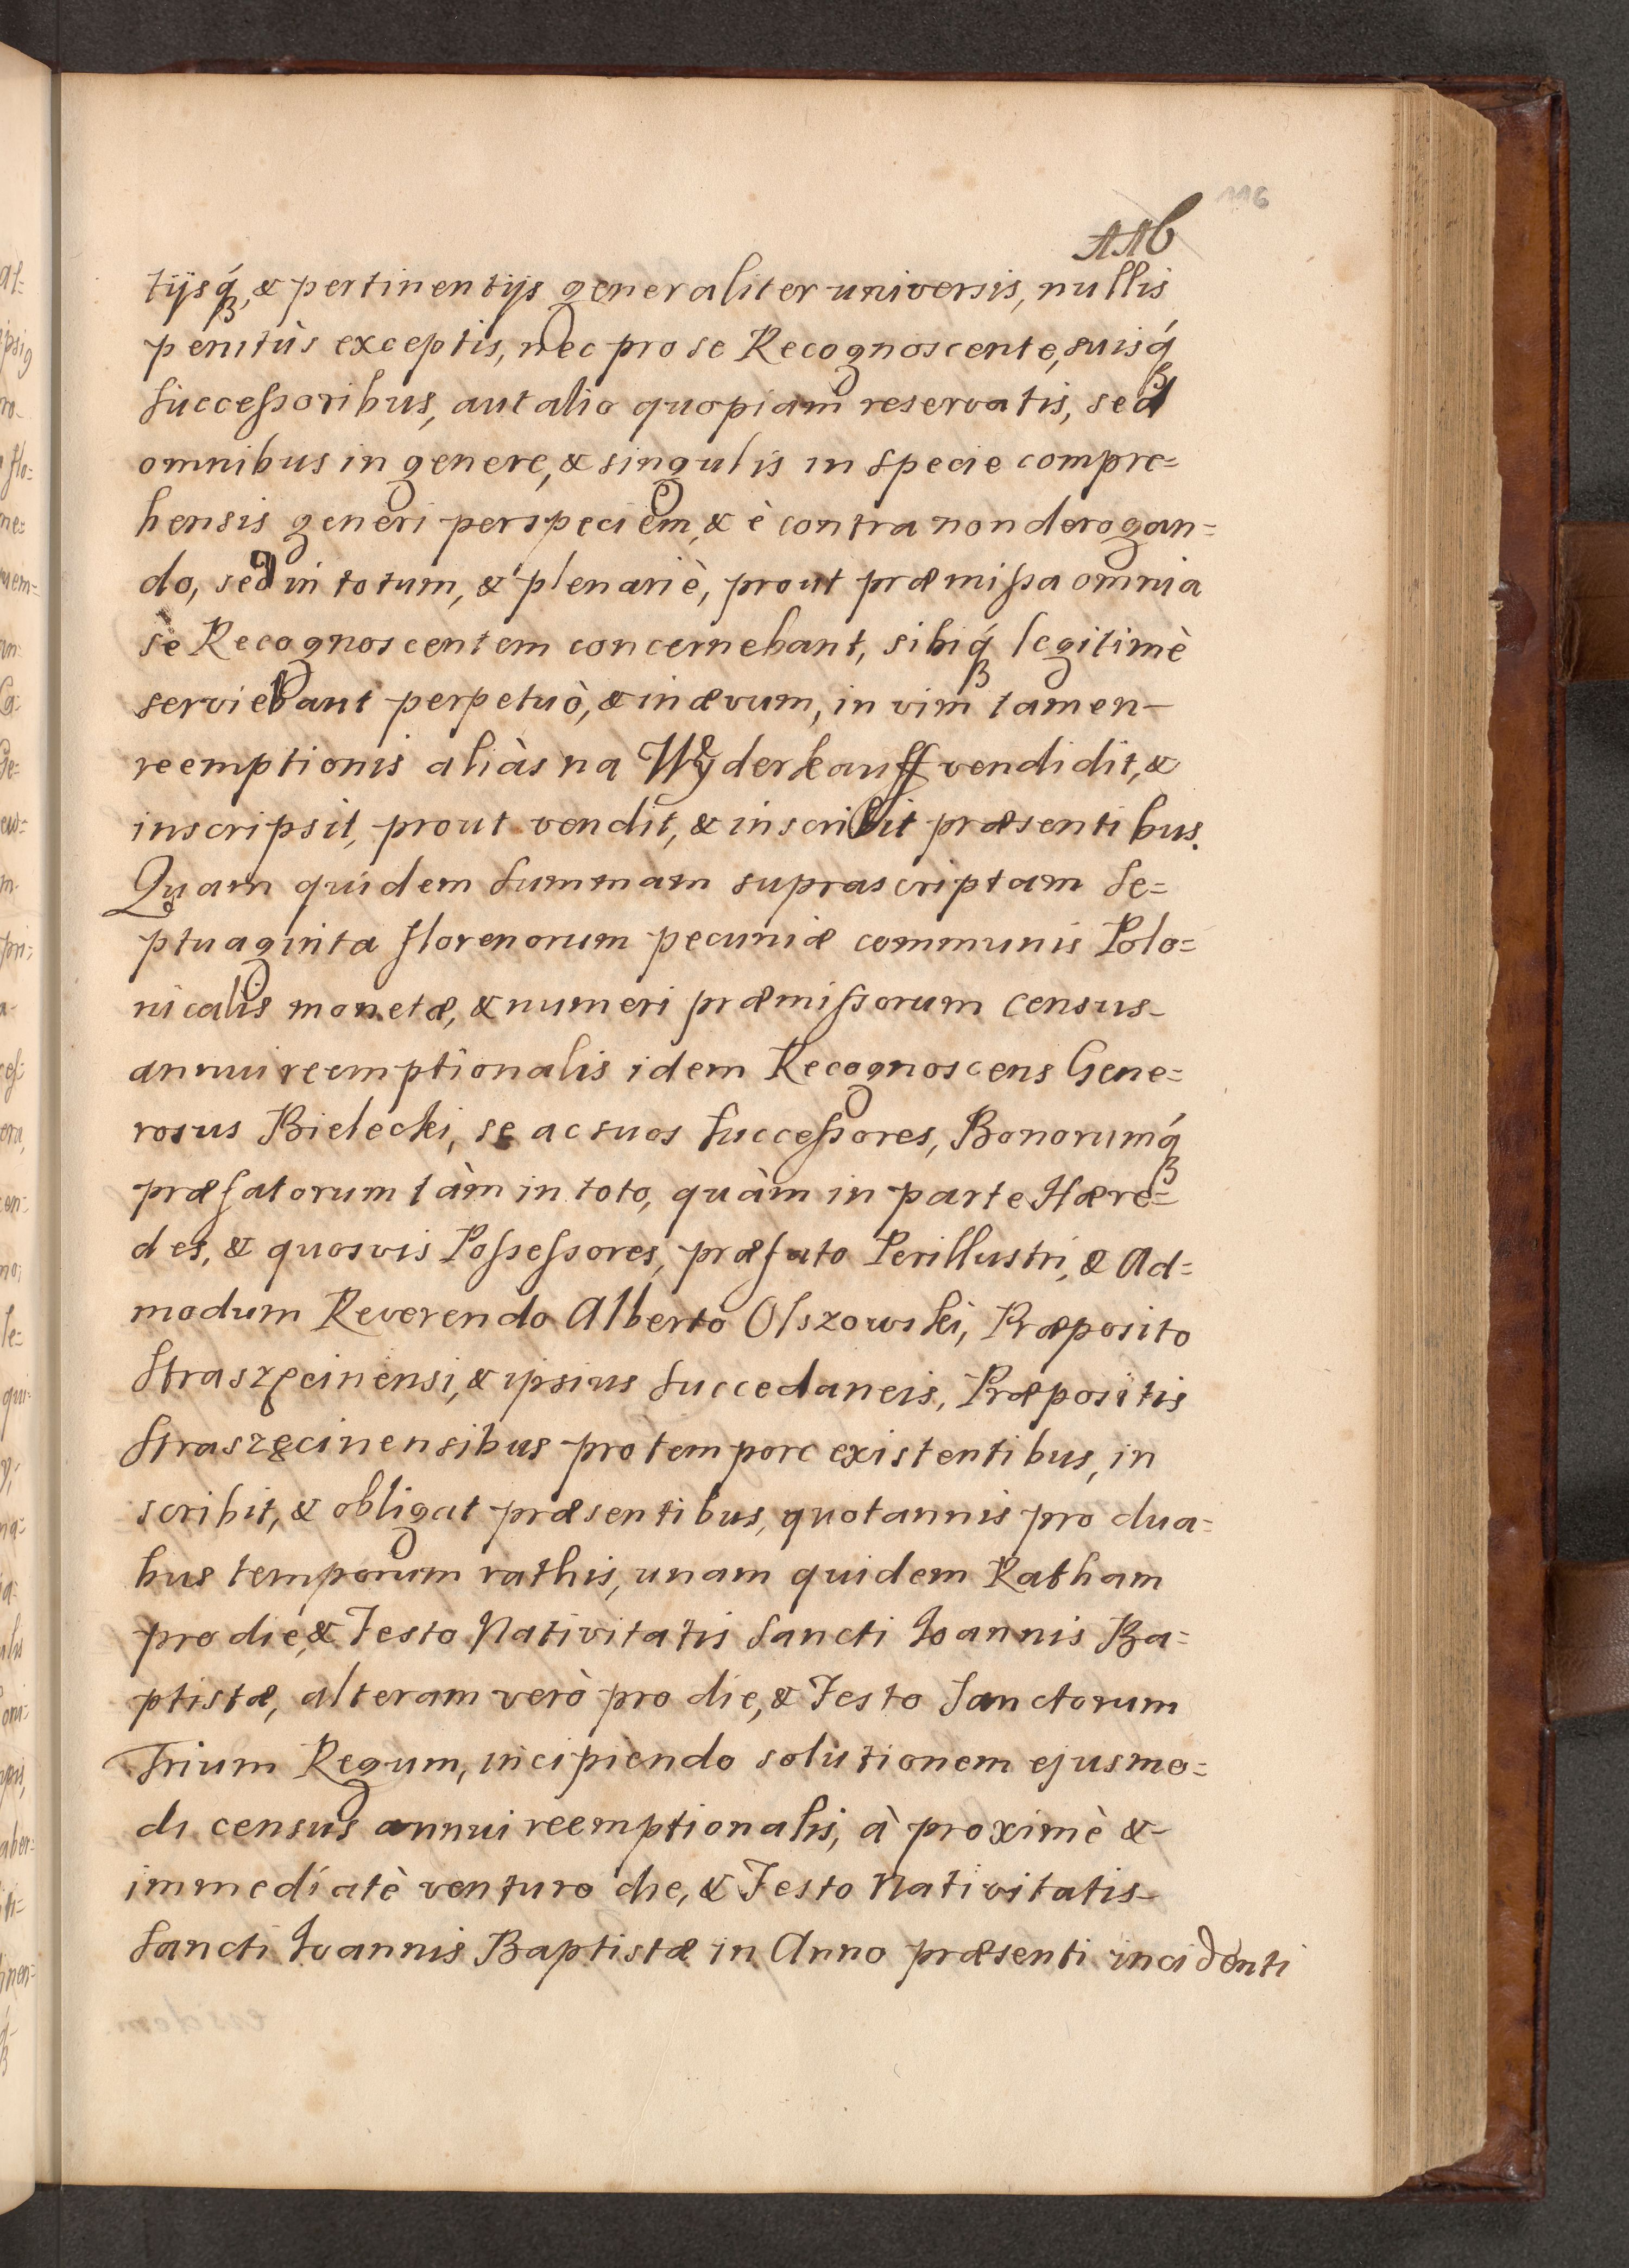 116
116
tijsq́ʒ, & pertinentijs generaliter universis, nullis
penitùs exceptis, nec pro se Recognoscente, suisq́ʒ
Succeßoribus, aut alio quopiam reservatis, sed
omnibus in genere, & singulis in Specie compre=
hensis generi per speciem, & è contra non derogan=
do, sed in totum, & plenariè, prout præmißa omnia
se Recognoscentem concernebant, sibiq́ʒ legitimè
serviebant perpetuò, & in ævum, in vim tamen-
reemptionis aliàs na Wyderkauff vendidit, &
inscripsit, prout vendit, & inscribit præsentibus.
Quam quidem Summam suprascriptam Se=
ptuaginta florenorum pecuniæ communis Polo=
nicalis monetæ, & numeri præmißorum census-
annui reemptionalis idem Recognoscens Gene=
rosus Bielecki, se ac suos Succeßores, Bonorumq́ʒ
præfatorum tàm in toto, quàm in parte Hære=
des, & quosvis Poßeßores, præfato Perillustri, & Ad=
modum Reverendo Alberto Olszowski, Præposito
Straszęcinensi, & ipsius Succedaneis, Præpositis
Straszęcinensibus pro tempore existentibus, in
scribit, & obligat præsentibus, quotannis pro dua=
bus temporum rathis, unam quidem Ratham
pro die, & Festo Nativitatis Sancti Joannis Ba=
ptistæ, alteram verò pro die, & Festo Sanctorum
Trium Regum, incipiendo solutionem ejusmo=
di census annui reemptionalis, à proximè &-
immediatè venturo die, & Festo Nativitatis-
Sancti Joannis Baptistæ in Anno præsenti incidenti